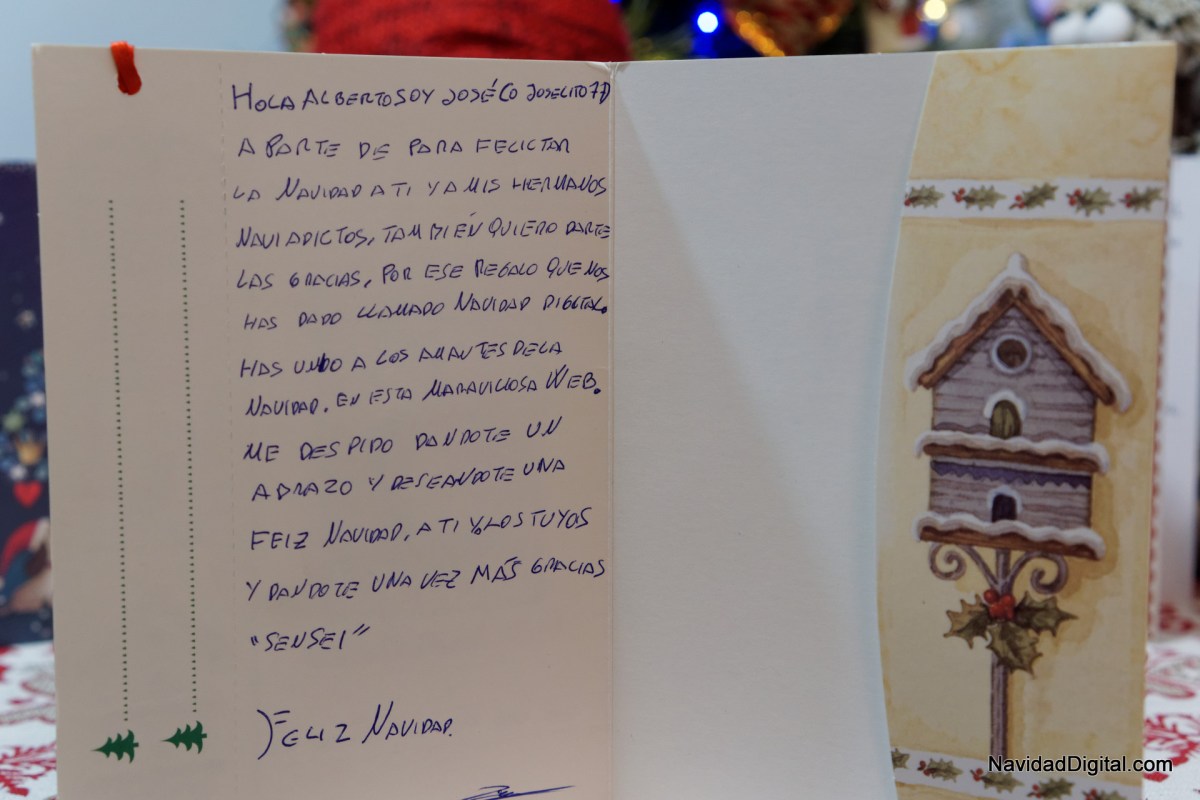 HOLA ALBERTO SOY JOSÉ O JOSELITO77
A PARTE DE PARA FELICTAR
LA NAVIDAD A TI Y A MIS HERMANOS
NAVIADICTOS, TAMBIÉN QUIERO DARTE
LAS GRACIAS, POR ESE REGALO QUE NOS
HAS DADO LLAMADO NAVIDAD DIGITAL.
HAS UNIDO A LOS AMANTES DE LA
NAVIDAD. EN ESTA MARAVILLOSA WEB.
ME DESPIDO DANDOTE UN
ABRAZO Y DESEANDOTE UNA
FELIZ NAVIDAD, A TI Y LOS TUYOS
Y DANDOTE UNA VEZ MÁS GRACIAS
"SENSEI"
FELIZ NAVIDAD.
NavidadDigital.com